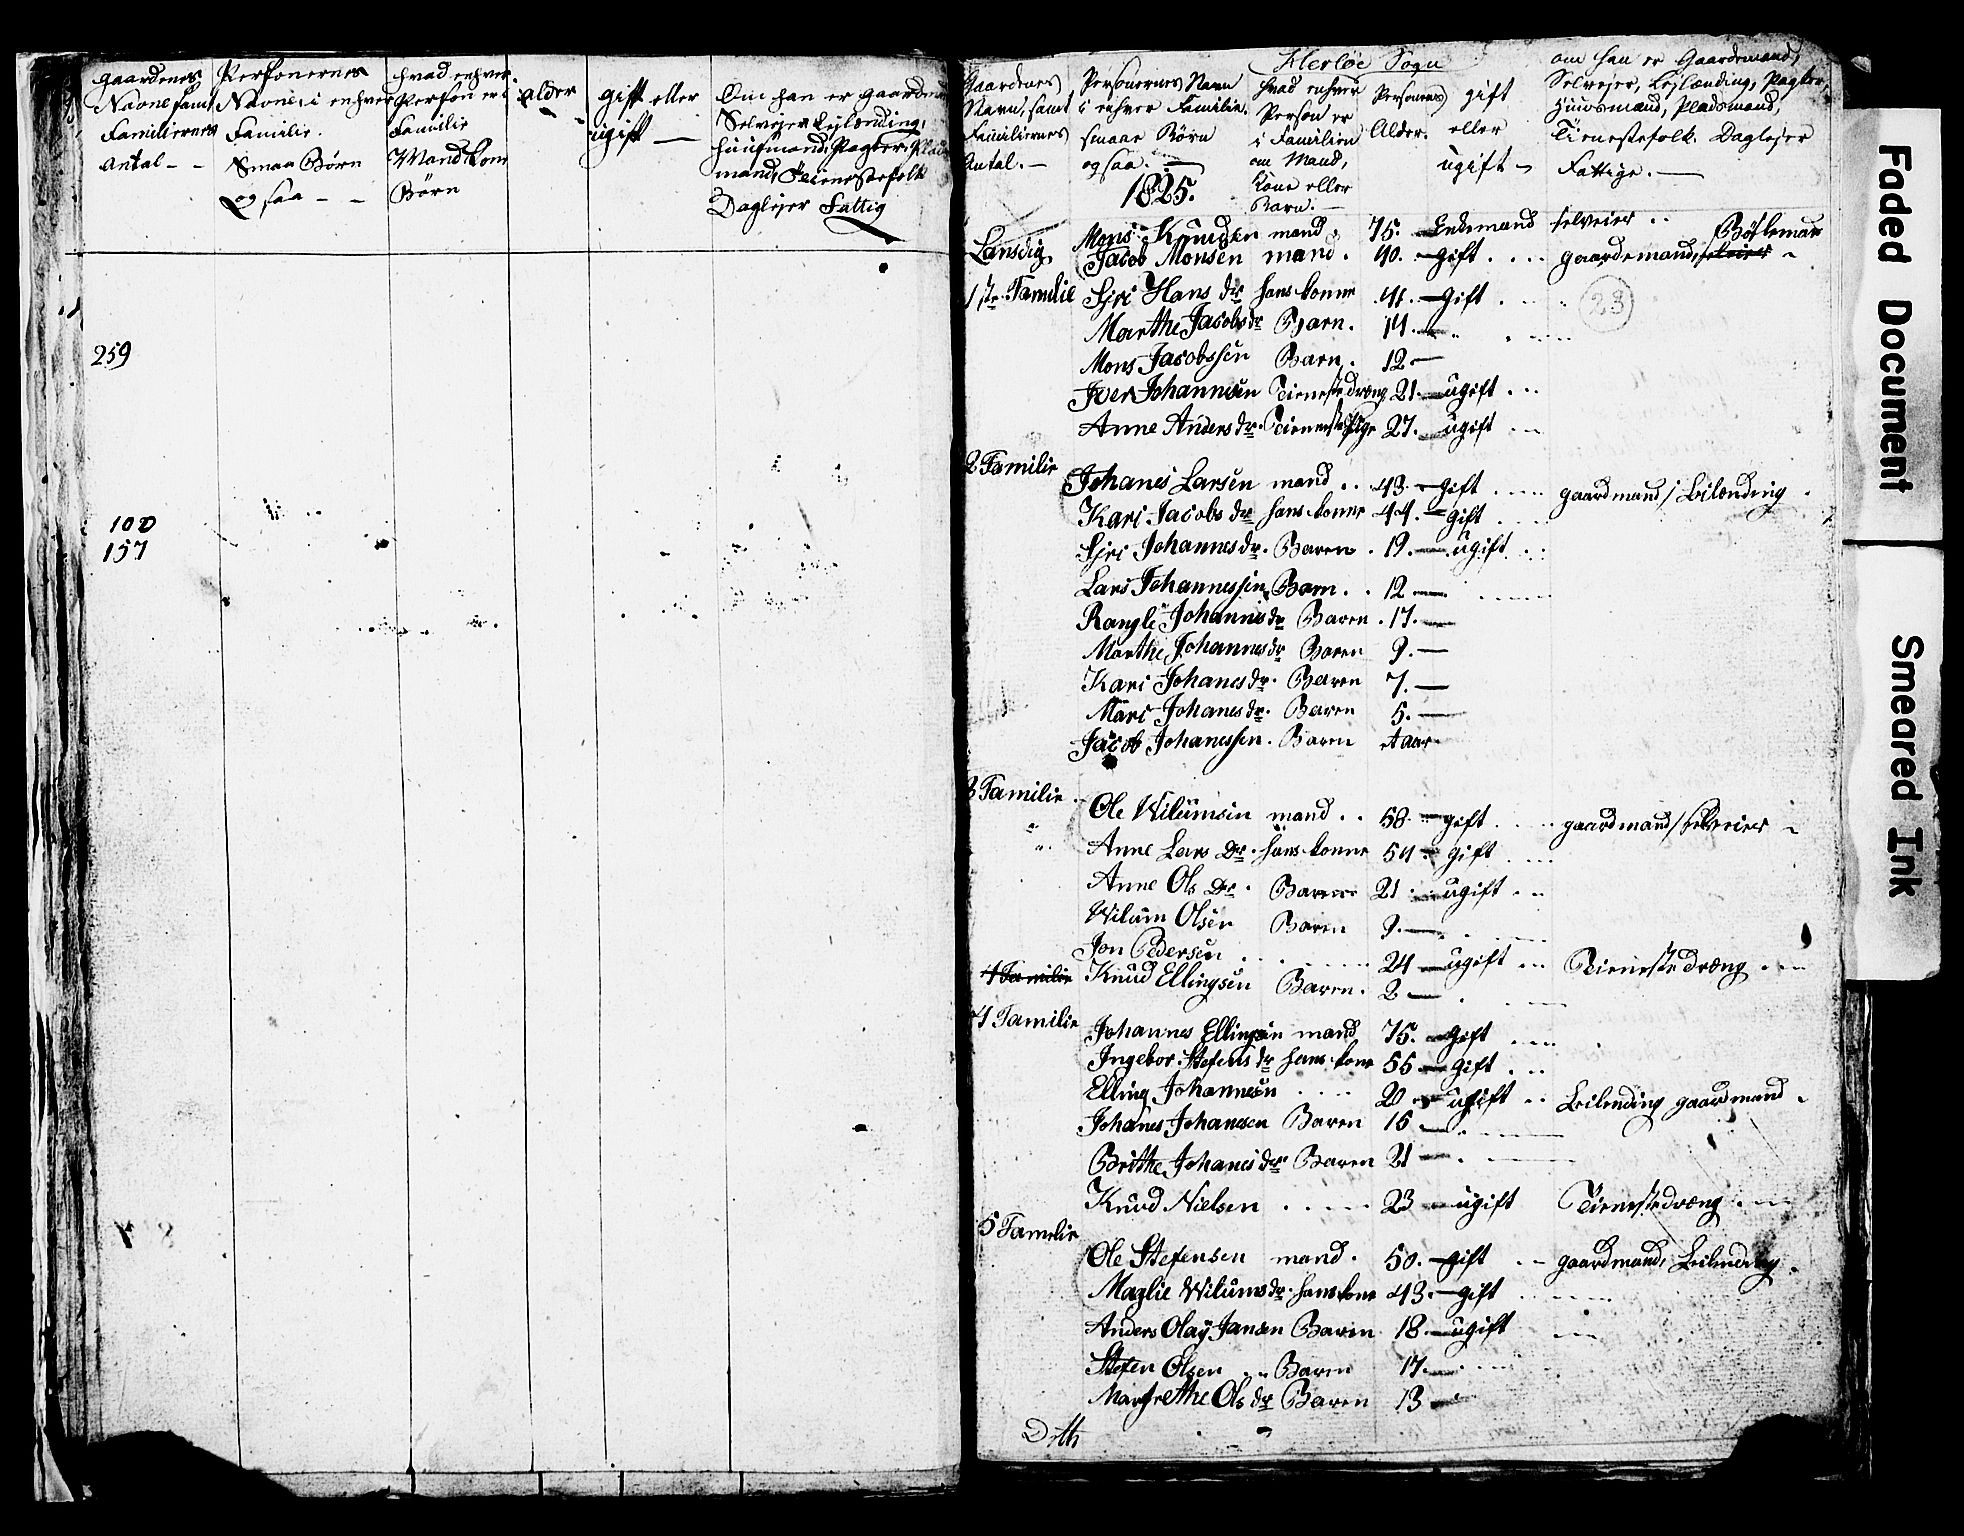 gaardenes
Navne samt
Familiernes
antal - -
Personernes
Navne i enhver
Familie.
Smaa Børn
og saa - -
hvad enhver
Person er i
Familie
Mand Kone
Børn
alder
gift eller
ugift —
Om han er gaardmand
Selveier Leylænding,
huusmand, Pagter, Plads
mand, Tienestefolk
Daglejer Fattig
259
100
157
Herløe Sogn
Gaardenes
Navn, samt
Familiernes
Antal. —
Personernes Navn
i enhver Familie.
smaae Børn
og saa. —
1825.
hvad enhver
Person er
i Familien
om Mand,
Kone eller
Barn. —
Personernes
Alder.
gift
eller
ugift -
om han er Gaardemand,
Selvejer, Lejlænding, Pagter,
Huusmand, Pladsmand,
Tienestefolk. Daglejer
Fattige. —
Mons Knudsen mand. 75. — Enkemand selveier ..
Landsvig Jacob Monsen mand. 40. — gift .... gaardemand,
1ste Familie Sjri Hans dr hans konne 41. — gift . 23
Marthe Jacobs dr Barn. 14. —
Mons Jacobssen Barn. 12 —
Iver Johannesen Tieneste dreng 21. — ugift ...
Anne Anders dr. Tieneste Pige 27. — ugift ...
2 Familie
Johanes Larsen mand .. 43. — gift .... gaardmand / Leilending .
Kari Jacobs dr hans konne 44. — gift ....
Sjri Johannes dr. Baren . 19. — ugift ...
Lars Johannessen Barn . . 12 —
Rangle Johannis dr Baren . 17. —
Marthe Johannes dr Baren 9. —
Kari Johanes dr. Baren 7. —
Mari Johanes dr. Baren 5. —
Jacob Johanessen . Baren et aar
3 Familie
Ole Wilumsen mand .. 58. — gift .... gaardmand / selveier
Anne Lars Dr. hans konne 54 — gift ....
Anne Ols Dr. Baren 21 . — ugift ...
Wilum Olsen Baren 9. —
Jon Pedersen ........ 24 — ugift ... Tieneste dreng ....
4 Familie Knud Ellingsen Baren. 2 —
4 Familie
Johannes Ellingsen mand 75. — gift ....
Ingebor Stefens dr hans kone 55 — gift ...
Elling Johannesen .... 20 — ugift .. Leilending gaardmand .
Johanes Johanesen Baren 16 —
Brithe Johanes dr Baren 21 —
Knud Nielsen ..... 23 — ugift Tieneste dreng ....
5 Familie
Ole Stefensen mand . 50. — gift .. gaardmand, Leilending .
Maglie Wilums dr. hans kone 43. — gift
Anders Olaÿ Jansen Baren 18. — ugift
Stefen Olsen .. Baren 17. —
Margrethe Ols dr Baren 13 —
Faded Document
Smeared Ink